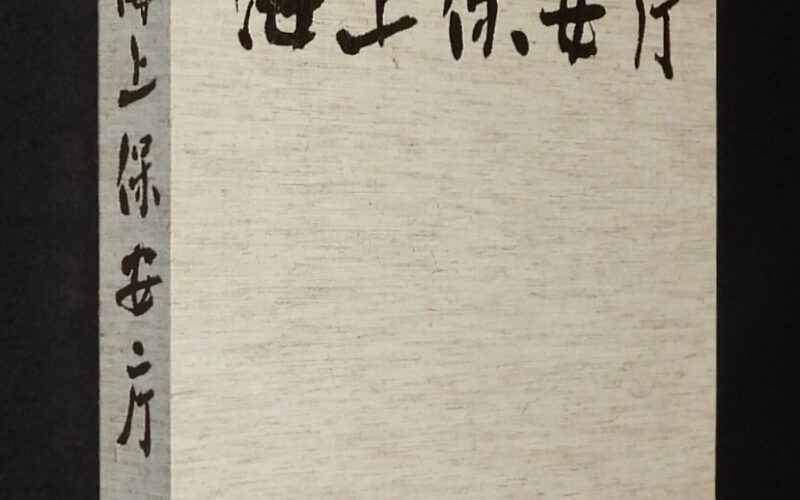 海上保安庁
海上保安庁